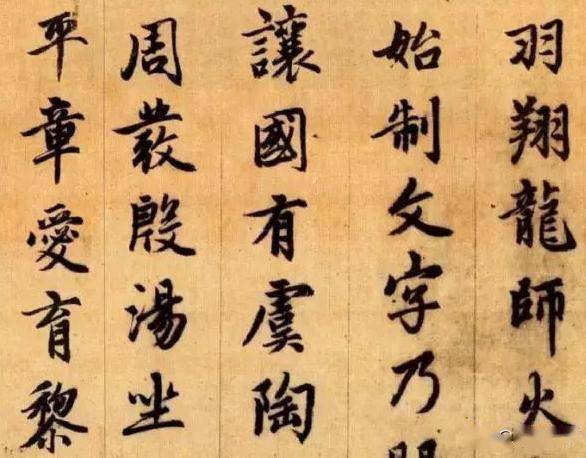 羽翔龍師火
始制文字乃
讓國有虞陶
周發殷湯坐
平章愛育黎